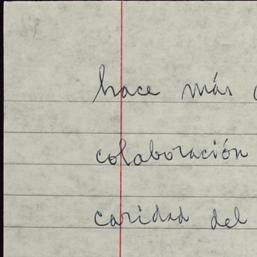 hace más
colaboración
caridad del